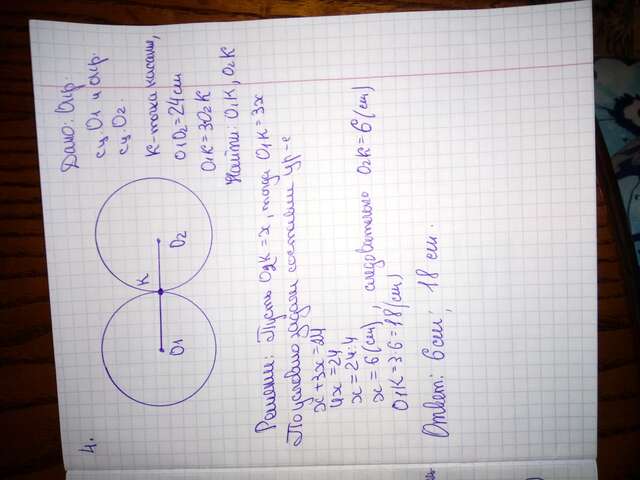 4.
Дано: Окр.
с ц. О1 и окр.
с ц. О2
К-точка касания,
О1О2=24см
О1К=3О2К
Найти: О1К, О2К
К
О1
О2
Решение: Пусть О2К=х, тогда О1К=3х
По условию задачи составим ур-е
х+3х=24
4х=24
х=24:4
х=6(см), следовательно О2К=6(см)
О1К=3·6=18(см)
Ответ: 6см; 18 см.